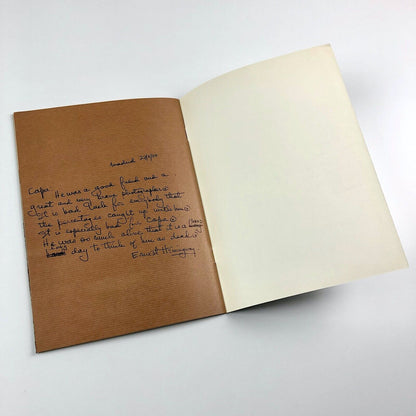 Madrid 27/5/54
Capa. He was a good friend and a
great and very brave photographer
It is bad luck for everybody that
the percentages caught up with him
It is especially bad for Capa
He was so much alive that it is a long
day to think of him as dead
Ernest Hemingway